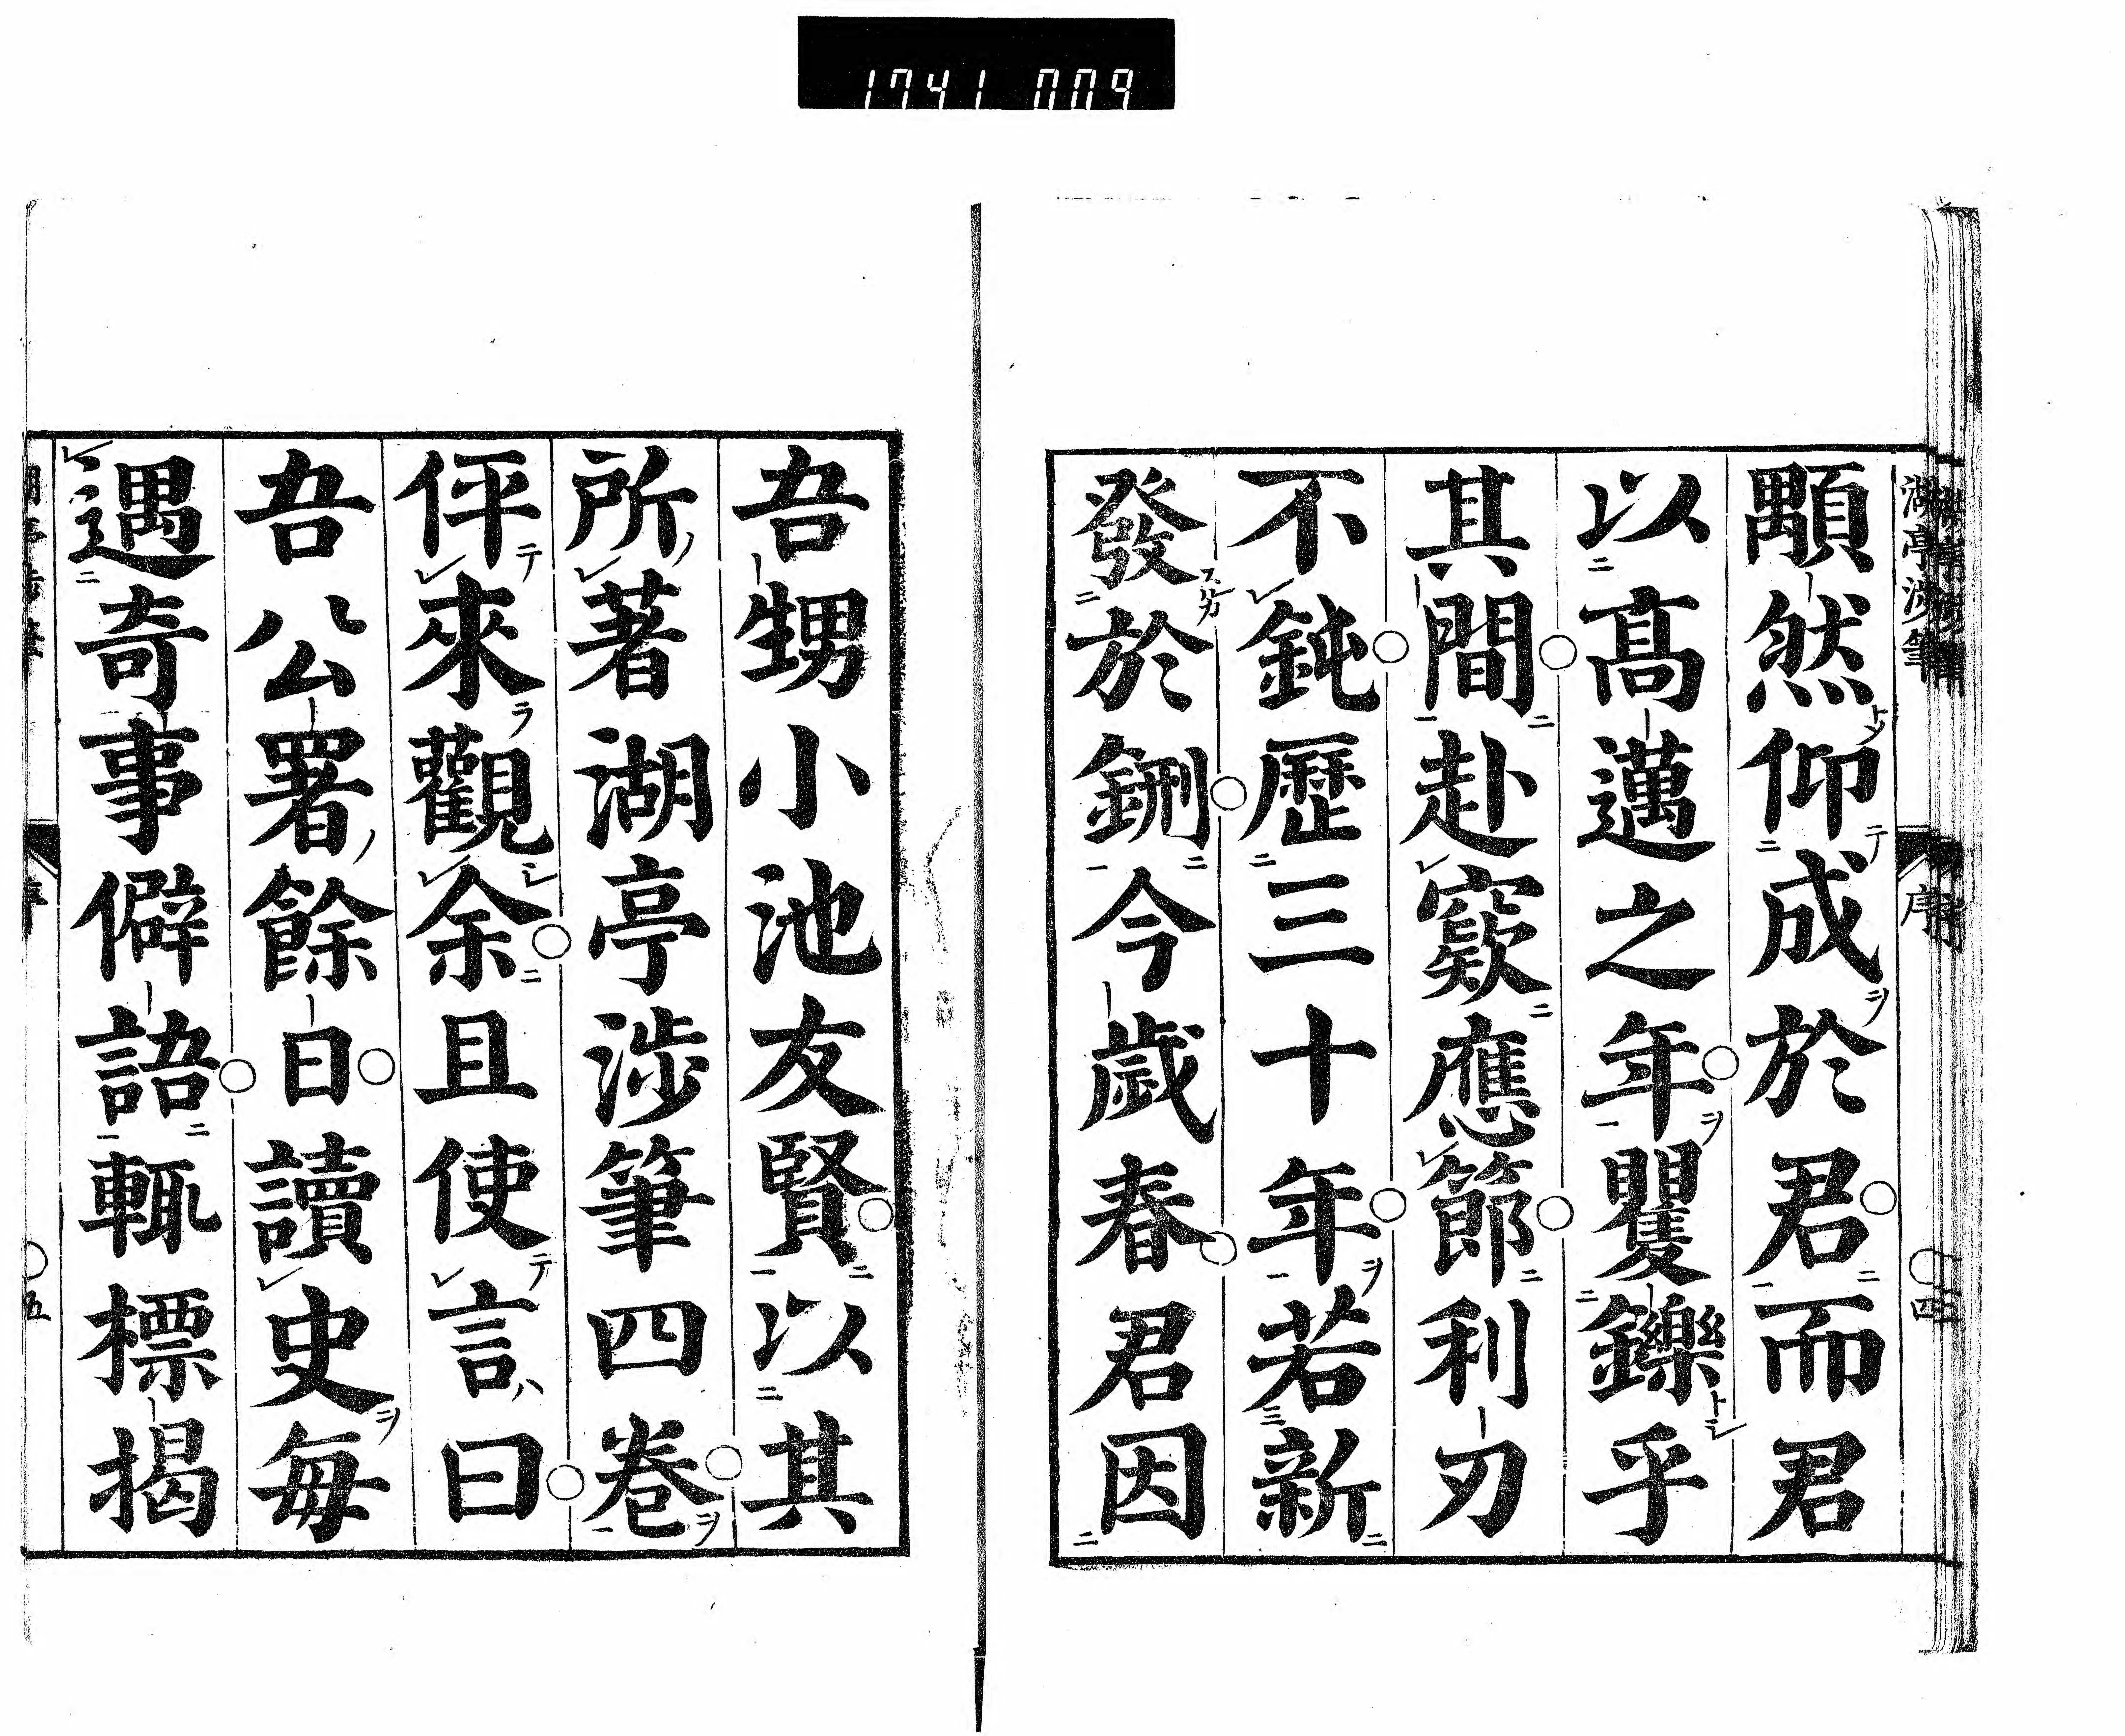 1741 009
湖亭涉筆
序
四
顒然仰成於君而君
以髙邁之年矍鑠乎
其間赴窾應節利刃
不鈍歷三十年若新
發於鉶今歲春君因
吾甥小池友賢以其
所著湖亭涉筆四卷
伻來觀余且使言曰
吾公署餘日讀史每
遇奇事僻語輒標揭
序
五